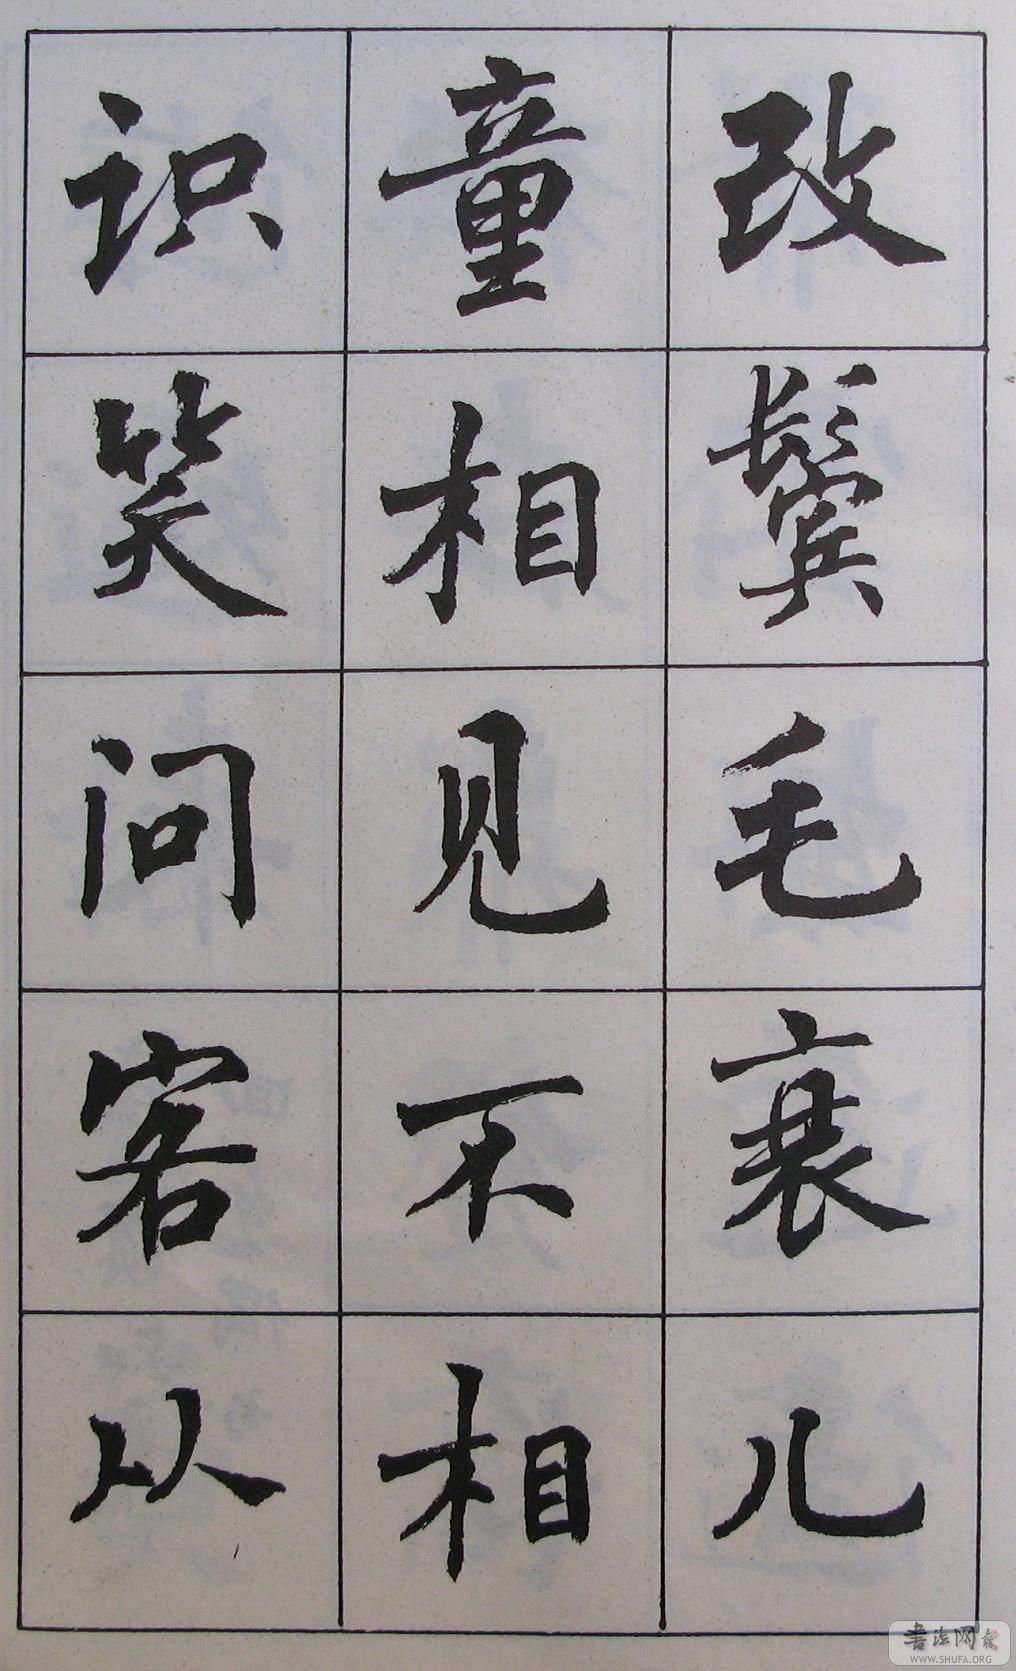 改鬓毛衰儿
童相见不相
识笑问客从
书法网
WWW.SHUFA.ORG